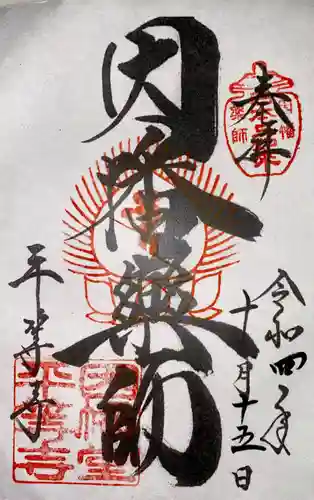 奉拝
令和四年
十一月十五日
因幡薬師
平等寺
因幡堂
平等寺